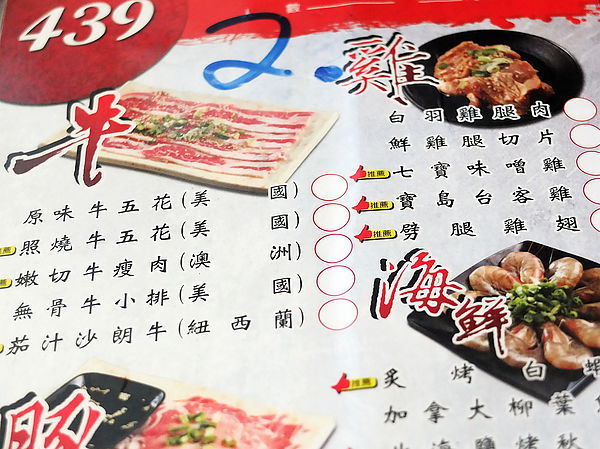 439
2.
牛
原味牛五花(美國)
推薦 照燒牛五花(美國)
推薦 嫩切牛瘦肉(澳洲)
無骨牛小排(美國)
茄汁沙朗牛(紐西蘭)
豚
雞
白羽雞腿肉
鮮雞腿切片
推薦 七寶味噌雞
推薦 寶島台客雞
推薦 劈腿雞翅
海鮮
推薦 炙烤白蝦
加拿大柳葉魚
海鹽烤秋